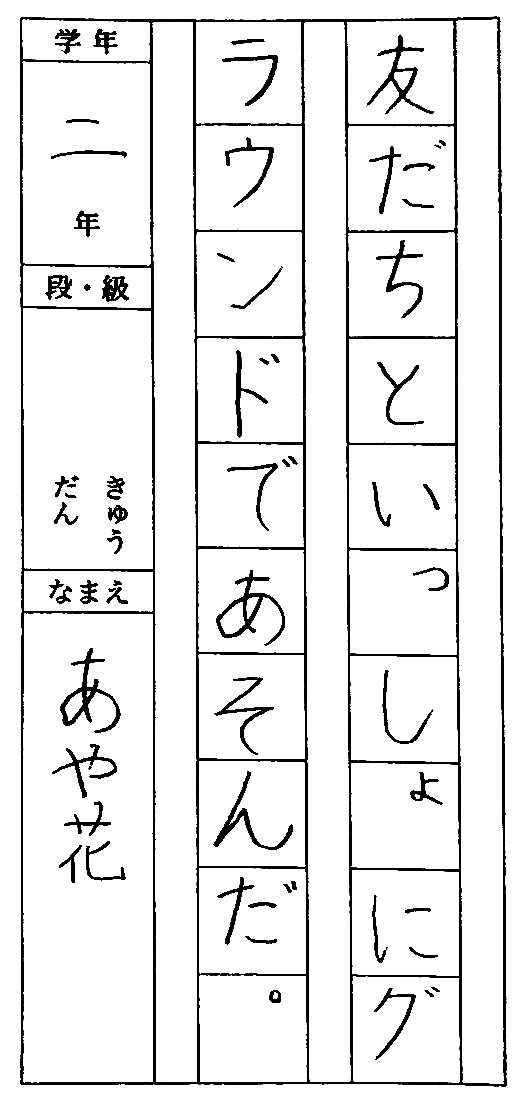 友だちといっしょにグ
ラウンドであそんだ。
学年
二年
段・級
きゅう
だん
なまえ
あや花